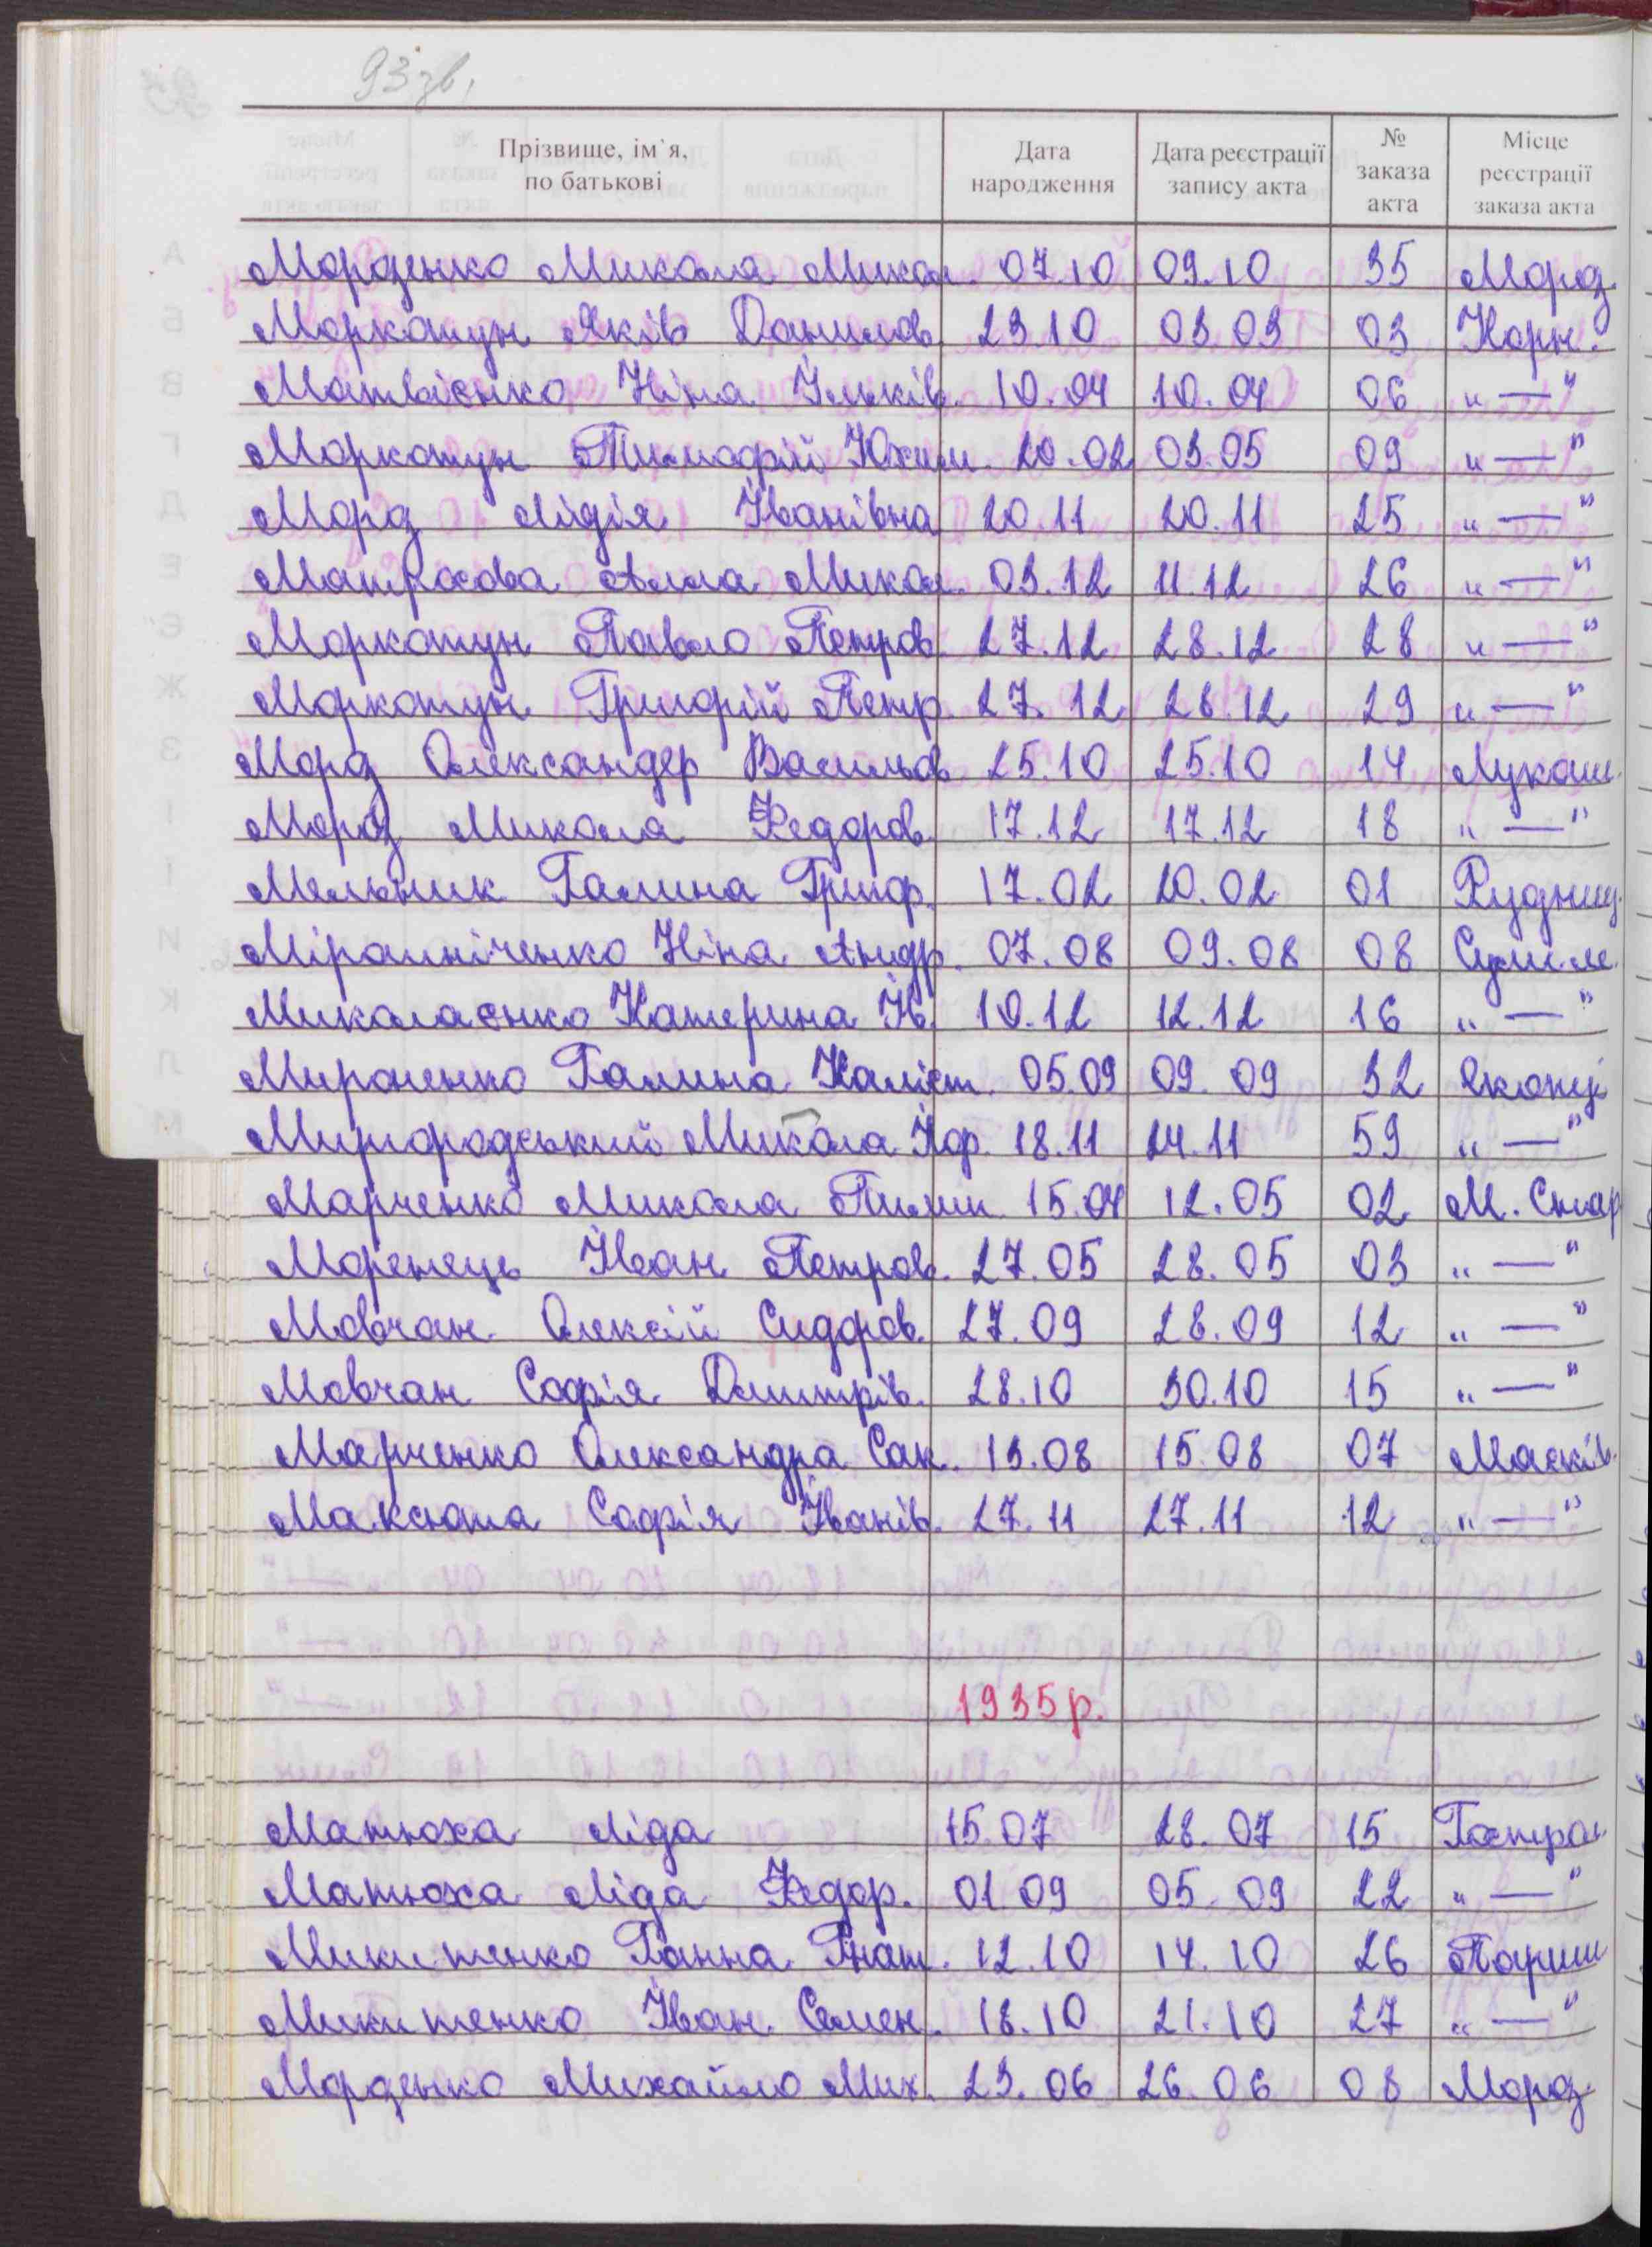 93 зв.
Прізвище, ім`я, по батькові Дата народження Дата реєстрації запису акта № заказа акта Місце реєстрації заказа акта
Морозенко Микола Микол. 07.10 09.10 35 Мороз.
Моркотун Яків Данилов. 23.10 03.03 03 Корн.
Матвієнко Ніна Ільків. 10.04 10.04 06 "—"
Моркотун Тимофій Юхим. 20.02 03.05 09 "—"
Мороз Лідія Іванівна 20.11 20.11 25 "—"
Матросова Алла Микол. 03.12 11.12 26 "—"
Моркотун Павло Петров. 27.12 28.12 28 "—"
Моркотун Григорій Петр. 27.12 28.12 29 "—"
Мороз Олександер Васильов. 25.10 25.10 14 Лукаш.
Мороз Микола Федоров. 17.12 17.12 18 "—"
Мельник Галина Григор. 17.02 20.02 01 Рудниц.
Мірошніченко Ніна Андр. 07.08 09.08 08
Миколаєнко Катерина Ів. 10.12 12.12 16 "—"
Мироненко Галина Каліст. 05.09 09.09 32
Миргородський Микола 18.11 24.11 59 "—"
Марченко Микола Пилип. 15.04 12.05 02 М. Стар
Моренець Іван Петров. 27.05 28.05 03 "—"
Мовчан Олексій Сидоров. 27.09 28.09 12 "—"
Мовчан Софія Дмитрів. 28.10 30.10 15 "—"
Марченко Олександра Сак. 13.08 15.08 07 Масків.
Максюта Софія Іванів. 27.11 27.11 12 "—"
1935р.
Матюха Ліда 15.07 28.07 15 Гострол.
Матюха Ліда Федор. 01.09 05.09 22 "—"
Микитенко Ганна Гнат. 12.10 14.10 26 Париш
Микитенко Іван Семен. 18.10 21.10 27 "—"
Морозенко Михайло Мих. 23.06 26.06 08 Мороз.